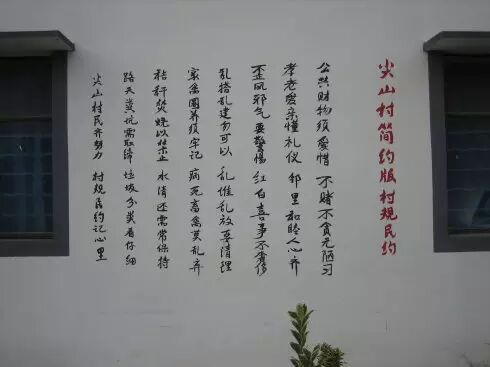 尖山村简约版村规民约
公共财物须爱惜 不赌不贪无陋习
孝老爱亲懂礼仪 邻里和睦人心齐
歪风邪气要警惕 红白喜事不奢侈
乱搭乱建勿可以 乱堆乱放要清理
家禽圈养须牢记 病死畜禽莫乱弃
秸秆焚烧以禁止 水清还需常保持
露天粪坑需取缔 垃圾分类看仔细
尖山村民齐努力 村规民约记心里